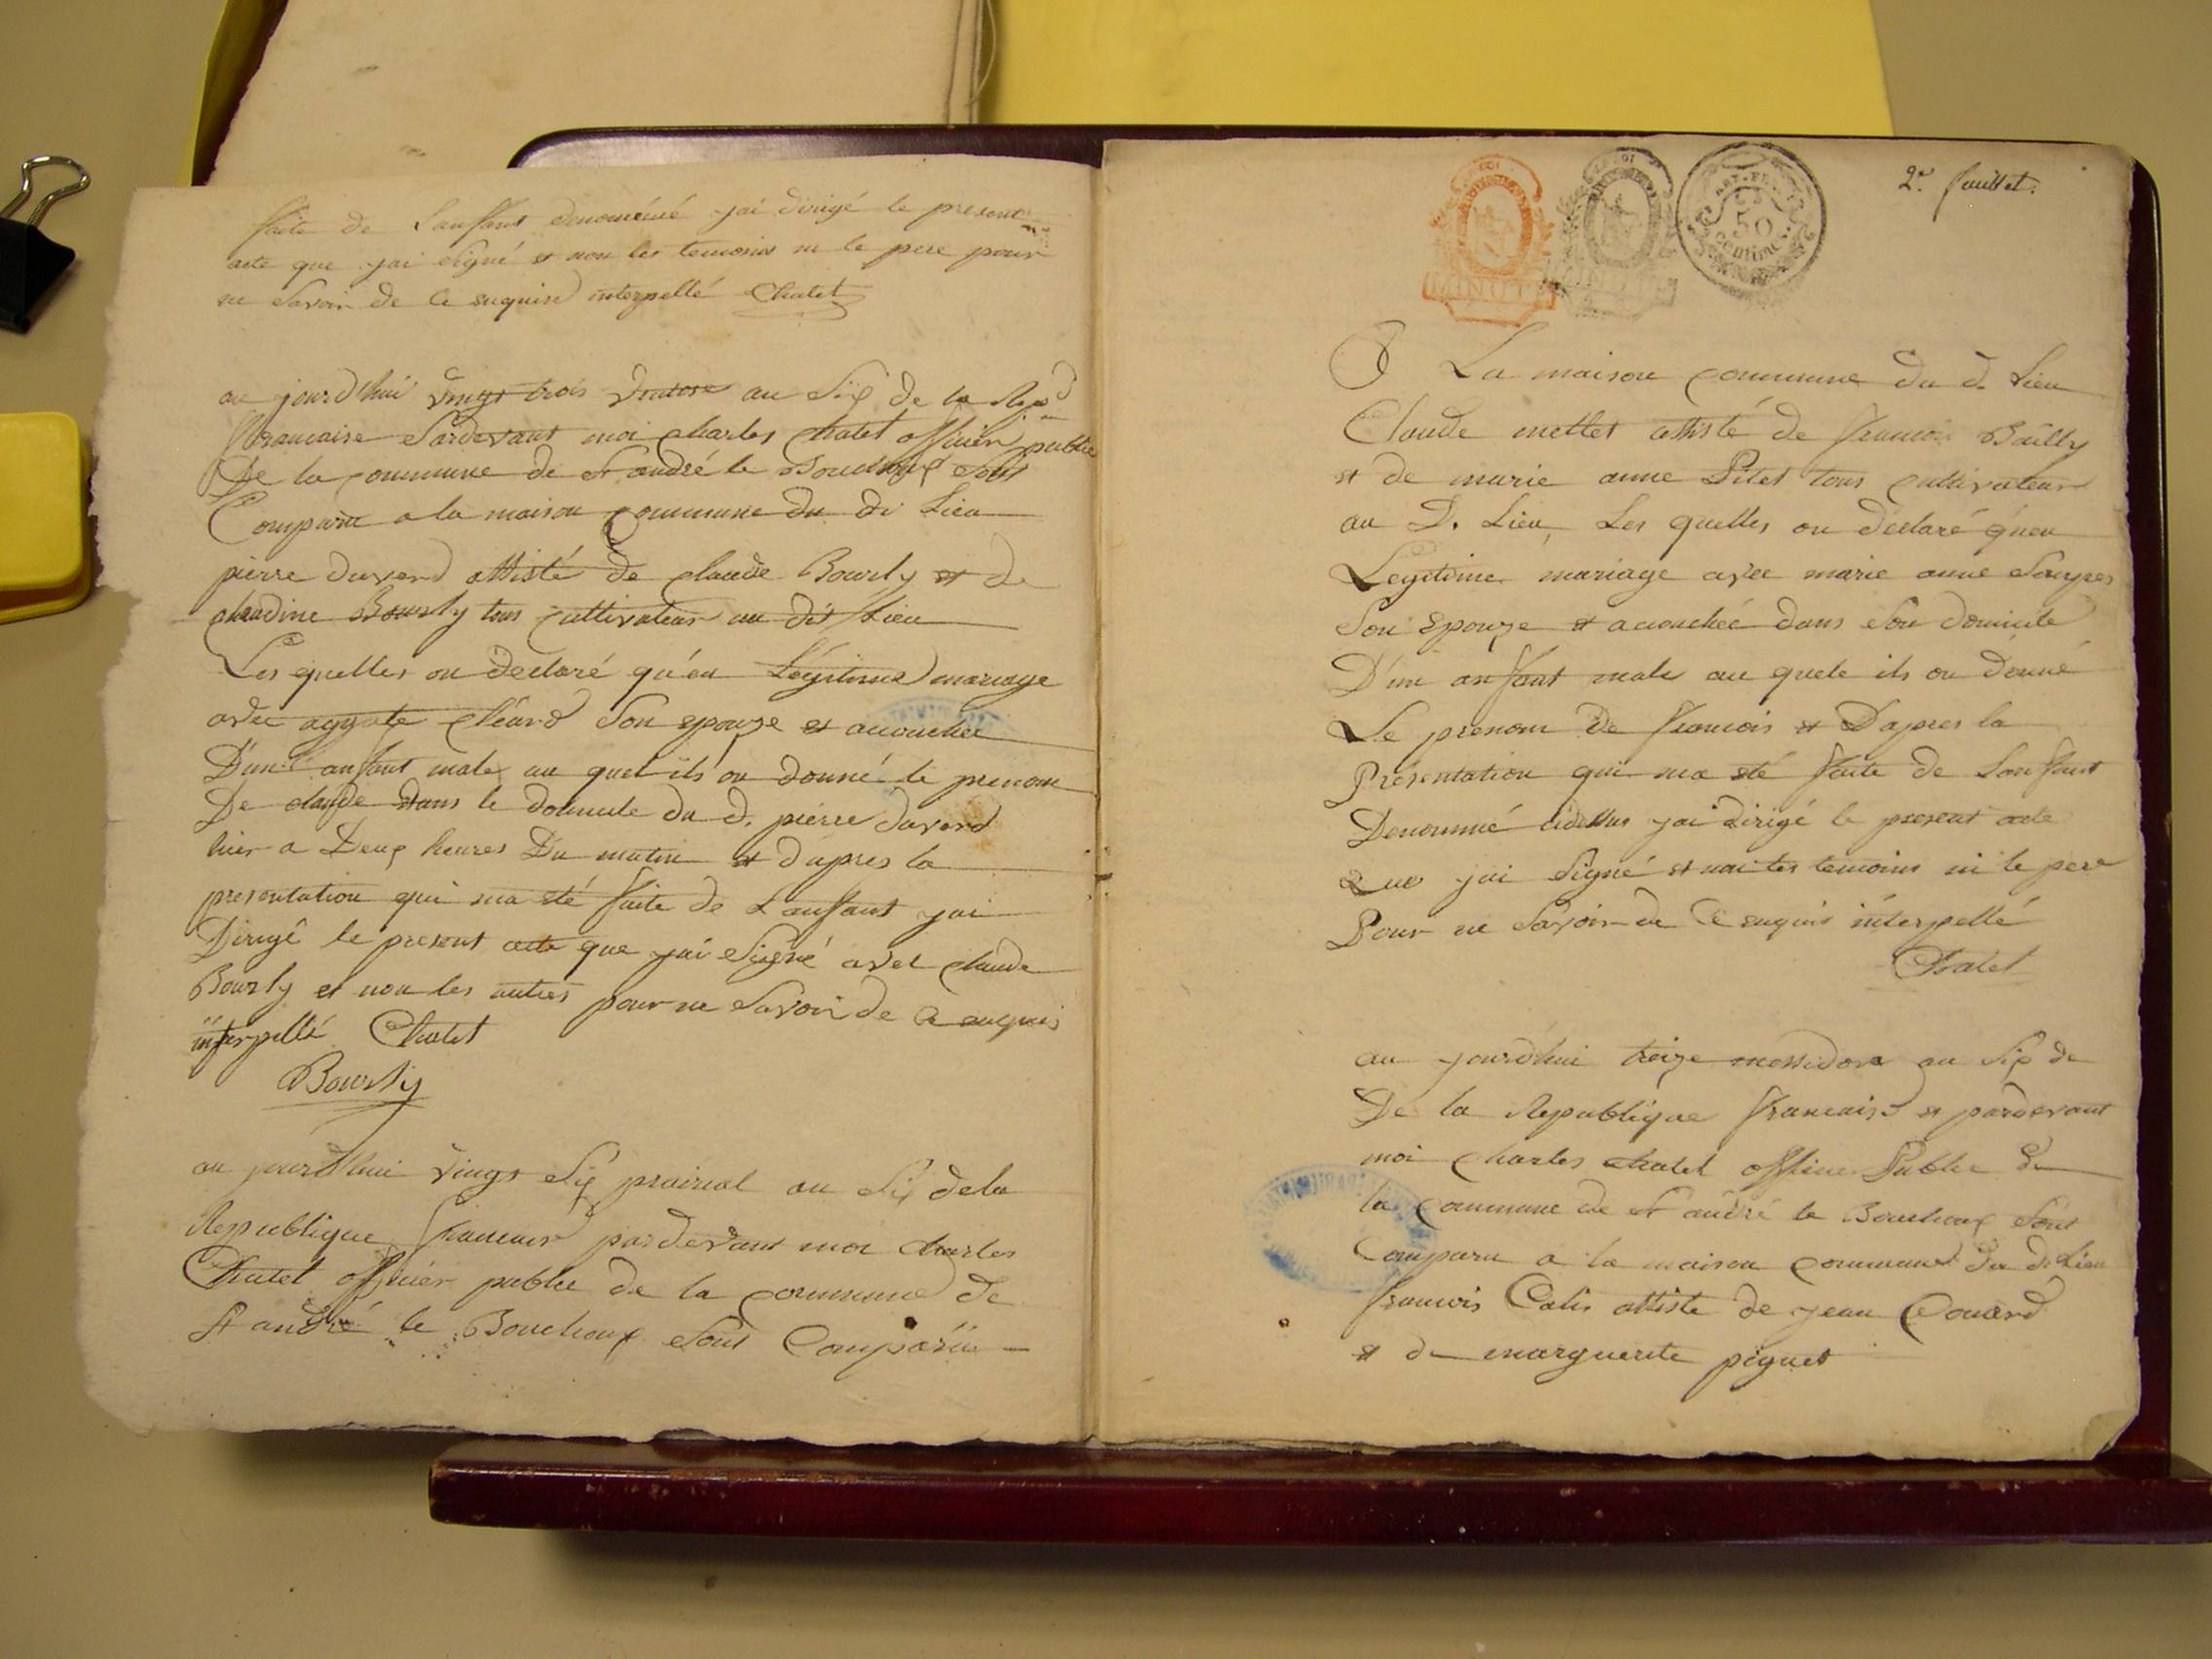 faite de Lanffant denommé jai dirigé le present
acte que jai Signé et non les temoins ni le pere pour
ne Savoir de Ce enquis interpellé Chatel
au jourd'hui vingt trois vantose an Six de la Repd
francaise Pardevant moi charles chatel officier public
De la commune de St andré le Bouchoux Sont
Comparu a la maison commune du di Lieu
pierre duverd attisté de claude Bourly et de
claudine Bourly tous cultivateur au dit Lieu
Les quelles on declaré qu'en Légitime mariage
avec aggate Son epouze et accouchée
D'un anfant male au quel ils on donné le prenom
De claude dans le domicile du d. pierre duverd
hier a Deux heures Du matin et d'apres la
presentation qui ma eté faite de Lanffant jai
Dirigé le present acte que jai Signé avec claude
Bourly et non les autres pour ne Savoir de Ce enquis
interpellé Chatel
Bourly
au jourd'hui vingt Six prairial an Six de la
Republique francaise pardevant moi charles
Chatel officier public de la commune de
St andré le Bouchoux Sont Comparu
2e feuillet.
MINUTE
REP. FRA.
50
centimes
La maison commune du d. Lieu
Claude mettet attisté de francois Bailly
et de marie anne Pitet tous cultivateur
au D. Lieu, Les quelles on déclaré qu'en
Legitime mariage avec marie anne
Son Epouze et acouchée dans Son domicile
D'un anffant male au quele ils on donné
Le prenom de francois et D'apres la
Présentation qui ma eté faite de Lanffant
Denommé cidessus jai dirigé le present acte
Que jai Signé et non les temoins ni le pere
Pour ne Savoir de Ce enquis interpellé
Chatel
au jourd'hui treize messidore an Six de
De la Republique francaise et pardevant
moi charles chatel officier Public de
la Commune de St andré le Bouchoux Sont
Comparu a la maison commune du d. Lieu
francois Catis attisté de jean
et de marguerite piguet